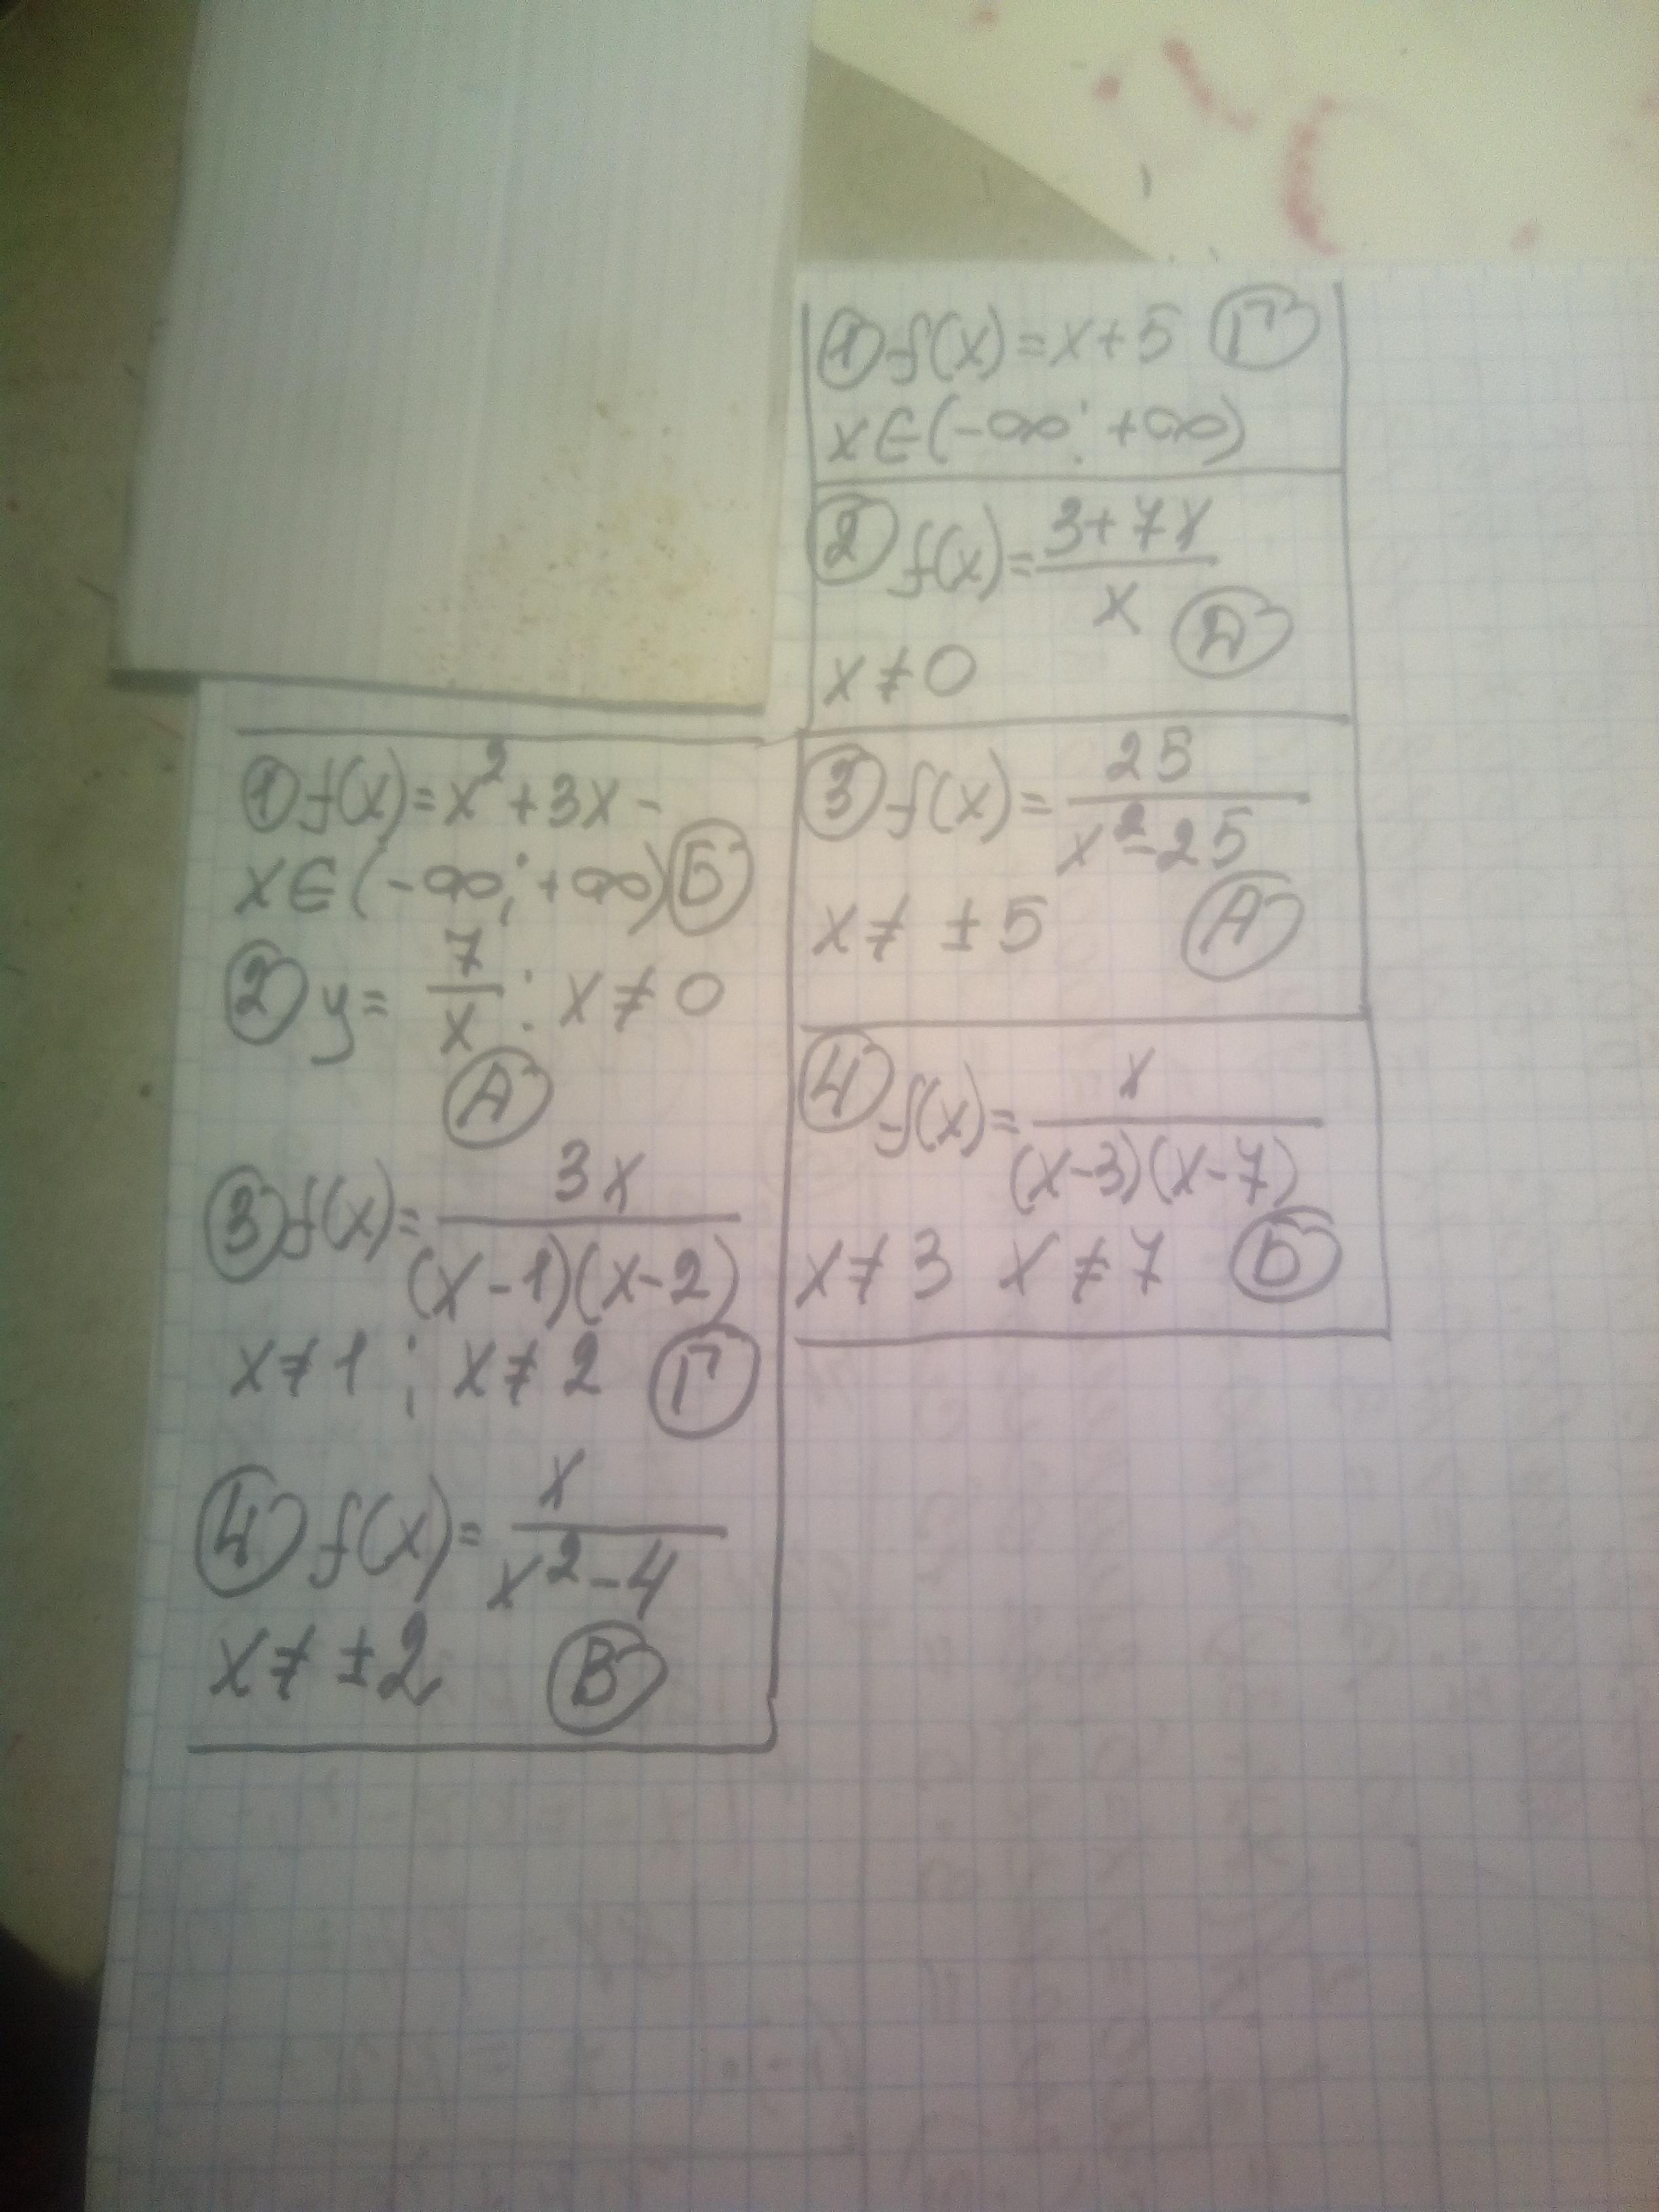 ① f(x)=x²+3x-
x∈(-∞;+∞) Б
② y= 7/x : x≠0
А
③ f(x)= 3x/((x-1)(x-2))
x≠1 ; x≠2 Г
④ f(x)= x/(x²-4)
x≠±2 В
① f(x)=x+5 Г
x∈(-∞;+∞)
② f(x)= (3+7x)/x
Д
x≠0
③ f(x)= 25/(x²-25)
x≠ ±5 А
④ f(x)= x/((x-3)(x-7))
x≠3 x≠7 Б